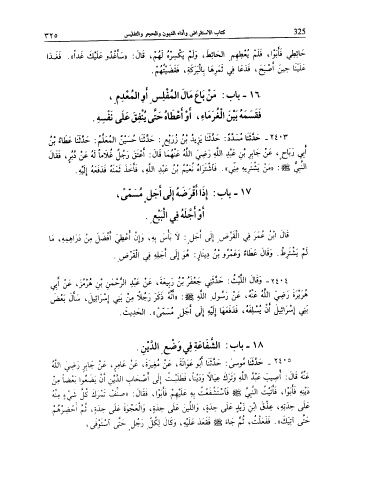 325 كتاب الاستقراض وأداء الديون والحجر والتفليس ٣٢٥
حَائِطِي فَأَبَوْا، فَلَمْ يُعْطِهِمِ الحَائِطَ، وَلَمْ يَكْسِرْهُ لَهُمْ، قَالَ: «سَأَغْدُو عَلَيْكَ غَداً». فَغَدَا
عَلَيْنَا حِينَ أَصْبَحَ، فَدَعَا فِي ثَمَرِهَا بِالْبَرَكَةِ، فَقَضَيْتُهُمْ.
١٦ - باب: مَنْ بَاعَ مَالَ الْمُفْلِسِ أَوِ الْمُعْدِمِ،
فَقَسَمَهُ بَيْنَ الْغُرَمَاءِ، أَوْ أَعْطَاهُ حَتَّى يُنْفِقَ عَلَى نَفْسِهِ.
٢٤٠٣ - حَدَّثَنَا مُسَدَّدٌ: حَدَّثَنَا يَزِيدُ بْنُ زُرَيْعٍ: حَدَّثَنَا حُسَيْنٌ المُعَلِّمُ: حَدَّثَنَا عَطَاءُ بْنُ
أَبِي رَبَاحٍ، عَنْ جَابِرِ بْنِ عَبْدِ اللَّهِ رَضِيَ اللَّهُ عَنْهُمَا قَالَ: أَعْتَقَ رَجُلٌ غُلَاماً لَهُ عَنْ دُبُرٍ، فَقَالَ
النَّبِيُّ ﷺ: «مَنْ يَشْتَرِيهِ مِنِّي». فَاشْتَرَاهُ نُعَيْمُ بْنُ عَبْدِ اللَّهِ، فَأَخَذَ ثَمَنَهُ فَدَفَعَهُ إِلَيْهِ.
١٧ - باب: إِذَا أَقْرَضَهُ إِلَى أَجَلٍ مُسَمًّى،
أَوْ أَجَّلَهُ فِي الْبَيْعِ.
قَالَ ابْنُ عُمَرَ فِي القَرْضِ إِلَى أَجَلٍ: لَا بَأْسَ بِهِ، وَإِنْ أُعْطِيَ أَفْضَلَ مِنْ دَرَاهِمِهِ، مَا
لَمْ يَشْتَرِطْ. وَقَالَ عَطَاءٌ وَعَمْرُو بْنُ دِينَارٍ: هُوَ إِلَى أَجَلِهِ فِي القَرْضِ.
٢٤٠٤ - وَقَالَ اللَّيْثُ: حَدَّثَنِي جَعْفَرُ بْنُ رَبِيعَةَ، عَنْ عَبْدِ الرَّحْمٰنِ بْنِ هُرْمُزَ، عَنْ أَبِي
هُرَيْرَةَ رَضِيَ اللَّهُ عَنْهُ، عَنْ رَسُولِ اللَّهِ ﷺ: «أَنَّهُ ذَكَرَ رَجُلًا مِنْ بَنِي إِسْرَائِيلَ، سَأَلَ بَعْضَ
بَنِي إِسْرَائِيلَ أَنْ يُسْلِفَهُ، فَدَفَعَهَا إِلَيْهِ إِلَى أَجَلٍ مُسَمًّى». الْحَدِيثَ.
١٨ - باب: الشَّفَاعَةِ فِي وَضْعِ الدَّيْنِ.
٢٤٠٥ - حَدَّثَنَا مُوسَى: حَدَّثَنَا أَبُو عَوَانَةَ، عَنْ مُغِيرَةَ، عَنْ عَامِرٍ، عَنْ جَابِرٍ رَضِيَ اللَّهُ
عَنْهُ قَالَ: أُصِيبَ عَبْدُ اللَّهِ وَتَرَكَ عِيَالًا وَدَيْناً، فَطَلَبْتُ إِلَى أَصْحَابِ الدَّيْنِ أَنْ يَضَعُوا بَعْضاً مِنْ
دَيْنِهِ فَأَبَوْا، فَأَتَيْتُ النَّبِيَّ ﷺ فَاسْتَشْفَعْتُ بِهِ عَلَيْهِمْ فَأَبَوْا، فَقَالَ: «صَنِّفْ تَمْرَكَ كُلَّ شَيْءٍ مِنْهُ
عَلَى حِدَتِهِ، عِذْقَ ابْنِ زَيْدٍ عَلَى حِدَةٍ، وَاللِّينَ عَلَى حِدَةٍ، وَالْعَجْوَةَ عَلَى حِدَةٍ، ثُمَّ أَحْضِرْهُمْ
حَتَّى آتِيَكَ». فَفَعَلْتُ، ثُمَّ جَاءَ ﷺ فَقَعَدَ عَلَيْهِ، وَكَالَ لِكُلِّ رَجُلٍ حَتَّى اسْتَوْفَى،